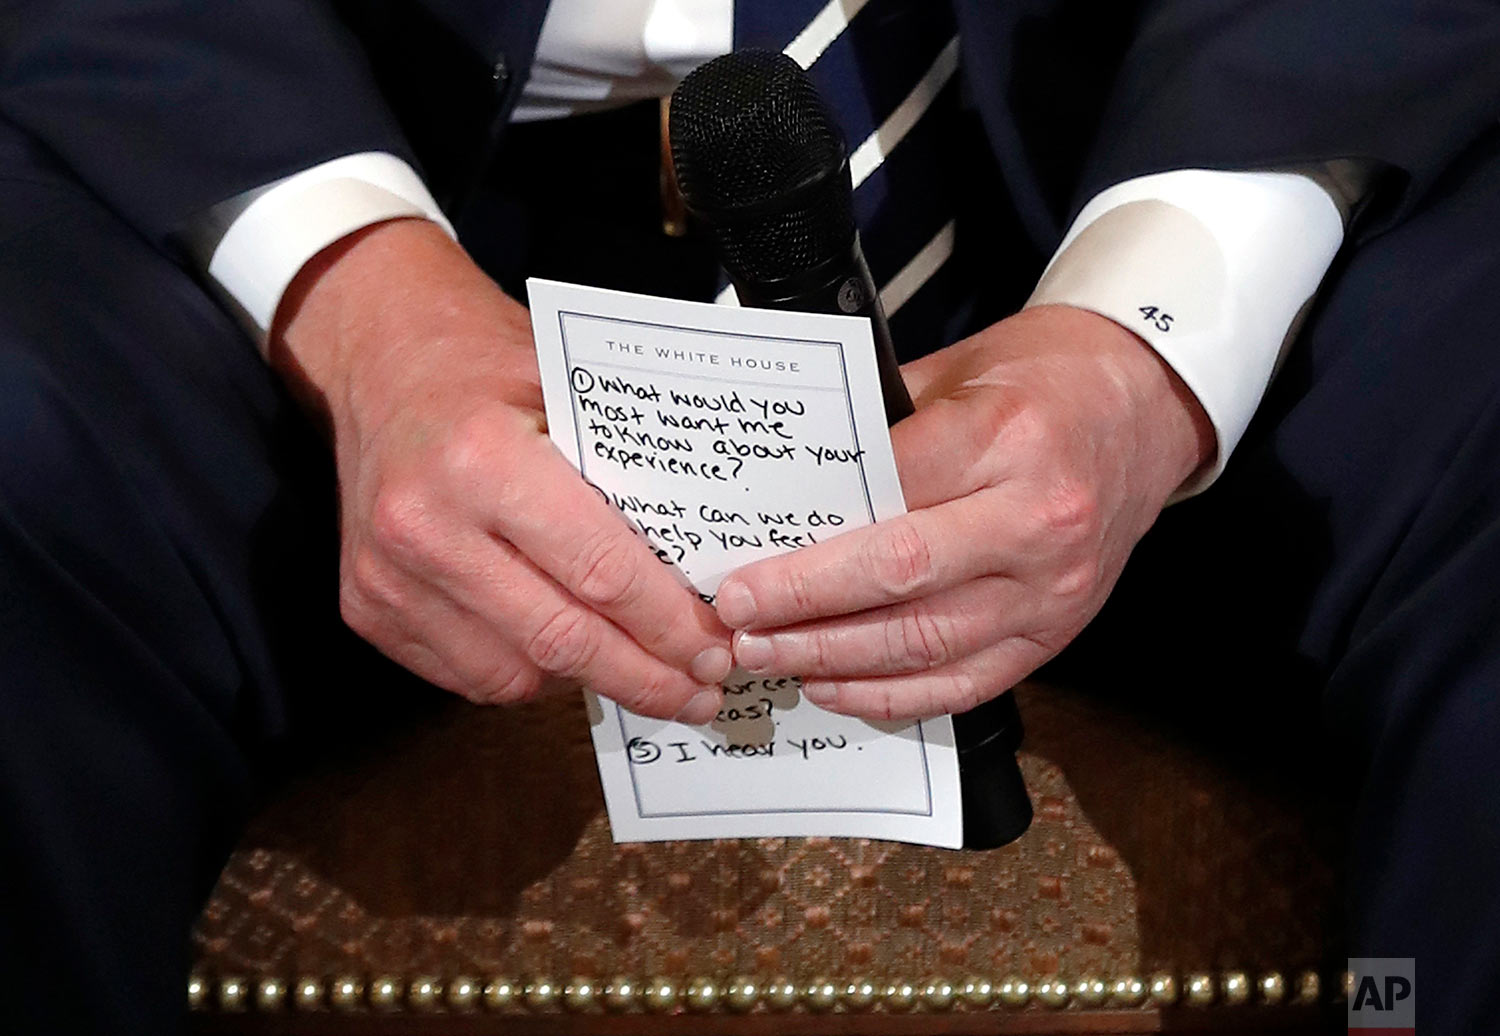 THE WHITE HOUSE
① What would you
most want me
to know about your
experience?
What can we do
help you feel
urces
eas?
⑤ I hear you.
45
AP